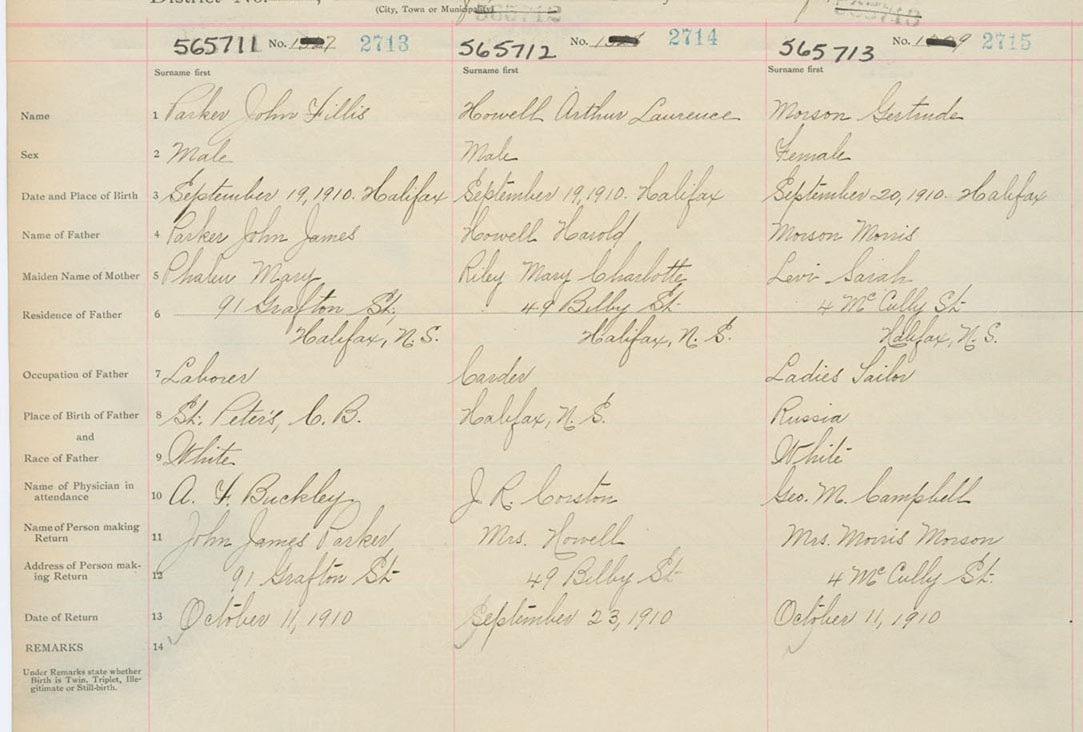 District No.
(City, Town or Municipality)
565712
565713
565711 No. 2713
565712 No. 2714
565713 No. 2715
Surname first
Surname first
Surname first
Name 1 Parker John Fillis Howell Arthur Laurence Morson Gertrude
Sex 2 Male Male Female
Date and Place of Birth 3 September 19, 1910. Halifax September 19, 1910. Halifax September 20, 1910. Halifax
Name of Father 4 Parker John James Howell Harold Morson Morris
Maiden Name of Mother 5 Phalen Mary Riley Mary Charlotte Levi Sarah
Residence of Father 6 91 Grafton St., 49 Bilby St 4 McCully St
Halifax, N.S. Halifax, N.S. Halifax, N.S.
Occupation of Father 7 Laborer Carder Ladies Tailor
Place of Birth of Father 8 St. Peter's, C.B. Halifax, N.S. Russia
and
Race of Father 9 White White
Name of Physician in
attendance 10 A. F. Buckley J. R. Corston Geo. M. Campbell
Name of Person making
Return 11 John James Parker Mrs. Howell Mrs. Morris Morson
Address of Person mak-
ing Return 12 91 Grafton St 49 Bilby St 4 McCully St.
Date of Return 13 October 11, 1910 September 23, 1910 October 11, 1910
REMARKS 14
Under Remarks state whether
Birth is Twin, Triplet, Ille-
gitimate or Still-birth.